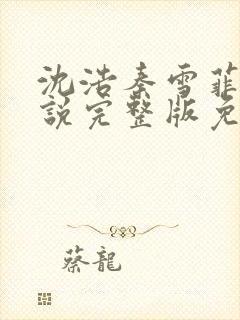 沈浩秦雪菲
說完整版免
蔡龍